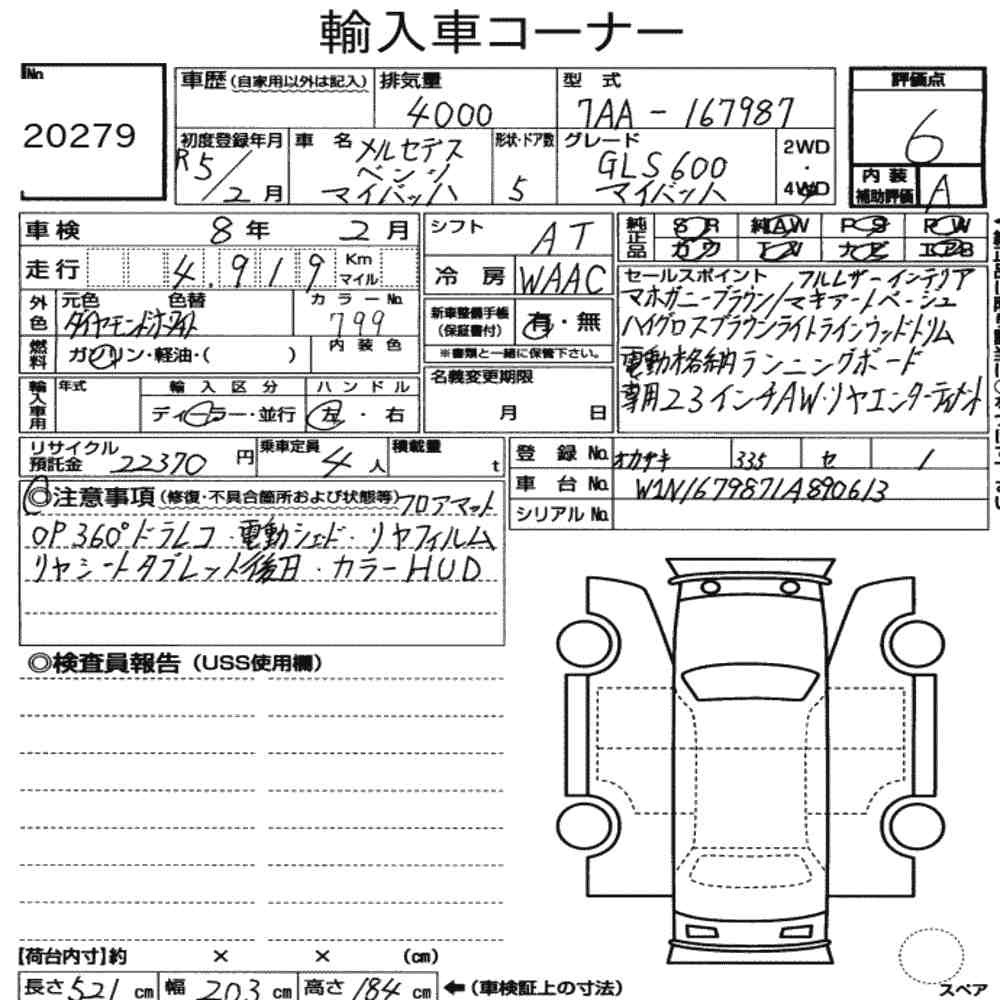 輸入車コーナー
No.
20279
車歴(自家用以外は記入)
排気量
4000
型 式
7AA-167987
評価点
6
初度登録年月
R5/2月
車 名
メルセデス
ベンツ
マイバッハ
形状・ドア数
5
グレード
GLS600
マイバッハ
2WD
・
4WD
内 装
補助評価
A
車検 8年 2月
シフト AT
純正品
SR 純AW PS PW
カワ TV ナビ エアB
走行 4,919 Km マイル
冷 房 WAAC
セールスポイント フルレザーインテリア
マホガニーブラウン/マキアートベージュ
ハイグロスブラウンライトラインウッドトリム
電動格納ランニングボード
専用23インチAW・リヤエンターテイメント
外色
元色 色替
ダイヤモンドホワイト
カラーNo.
799
新車整備手帳
(保証書付)
有・無
※書類と一緒に保管下さい。
燃料
ガソリン・軽油・( )
内 装 色
輸入車用
年式
輸 入 区 分
ディーラー・並行
ハ ン ド ル
左 ・ 右
名義変更期限
月 日
リサイクル
預託金
22370円
乗車定員
4人
積載量
t
登 録 No. オカザキ 335 セ 1
車 台 No. W1N1679871A890613
シリアルNo.
◎注意事項(修復・不具合箇所および状態等)フロアマット
OP360°ドラレコ・電動シェード・リヤフィルム
リヤシートタブレット後日・カラーHUD
◎検査員報告(USS使用欄)
【荷台内寸】約 × × (cm)
長さ521cm 幅203cm 高さ184cm ←(車検証上の寸法)
スペア